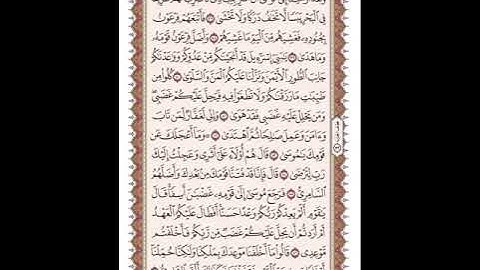 فِي ٱلۡبَحۡرِ يَبَسٗا لَّا تَخَٰفُ دَرَكٗا وَلَا تَخۡشَىٰ ٧٧ فَأَتۡبَعَهُمۡ فِرۡعَوۡنُ
بِجُنُودِهِۦ فَغَشِيَهُم مِّنَ ٱلۡيَمِّ مَا غَشِيَهُمۡ ٧٨ وَأَضَلَّ فِرۡعَوۡنُ قَوۡمَهُۥ
وَمَا هَدَىٰ ٧٩ يَٰبَنِيٓ إِسۡرَٰٓءِيلَ قَدۡ أَنجَيۡنَٰكُم مِّنۡ عَدُوِّكُمۡ وَوَٰعَدۡنَٰكُمۡ
جَانِبَ ٱلطُّورِ ٱلۡأَيۡمَنَ وَنَزَّلۡنَا عَلَيۡكُمُ ٱلۡمَنَّ وَٱلسَّلۡوَىٰ ٨٠ كُلُواْ مِن
طَيِّبَٰتِ مَا رَزَقۡنَٰكُمۡ وَلَا تَطۡغَوۡاْ فِيهِ فَيَحِلَّ عَلَيۡكُمۡ غَضَبِيۖ
وَمَن يَحۡلِلۡ عَلَيۡهِ غَضَبِي فَقَدۡ هَوَىٰ ٨١ وَإِنِّي لَغَفَّارٞ لِّمَن تَابَ
وَءَامَنَ وَعَمِلَ صَٰلِحٗا ثُمَّ ٱهۡتَدَىٰ ٨٢ ۞ وَمَآ أَعۡجَلَكَ عَن
قَوۡمِكَ يَٰمُوسَىٰ ٨٣ قَالَ هُمۡ أُوْلَآءِ عَلَىٰٓ أَثَرِي وَعَجِلۡتُ إِلَيۡكَ
رَبِّ لِتَرۡضَىٰ ٨٤ قَالَ فَإِنَّا قَدۡ فَتَنَّا قَوۡمَكَ مِنۢ بَعۡدِكَ وَأَضَلَّهُمُ
ٱلسَّامِرِيُّ ٨٥ فَرَجَعَ مُوسَىٰٓ إِلَىٰ قَوۡمِهِۦ غَضۡبَٰنَ أَسِفٗاۚ قَالَ
يَٰقَوۡمِ أَلَمۡ يَعِدۡكُمۡ رَبُّكُمۡ وَعۡدًا حَسَنًاۚ أَفَطَالَ عَلَيۡكُمُ ٱلۡعَهۡدُ
أَمۡ أَرَدتُّمۡ أَن يَحِلَّ عَلَيۡكُمۡ غَضَبٞ مِّن رَّبِّكُمۡ فَأَخۡلَفۡتُم
مَّوۡعِدِي ٨٦ قَالُواْ مَآ أَخۡلَفۡنَا مَوۡعِدَكَ بِمَلۡكِنَا وَلَٰكِنَّا حُمِّلۡنَآ